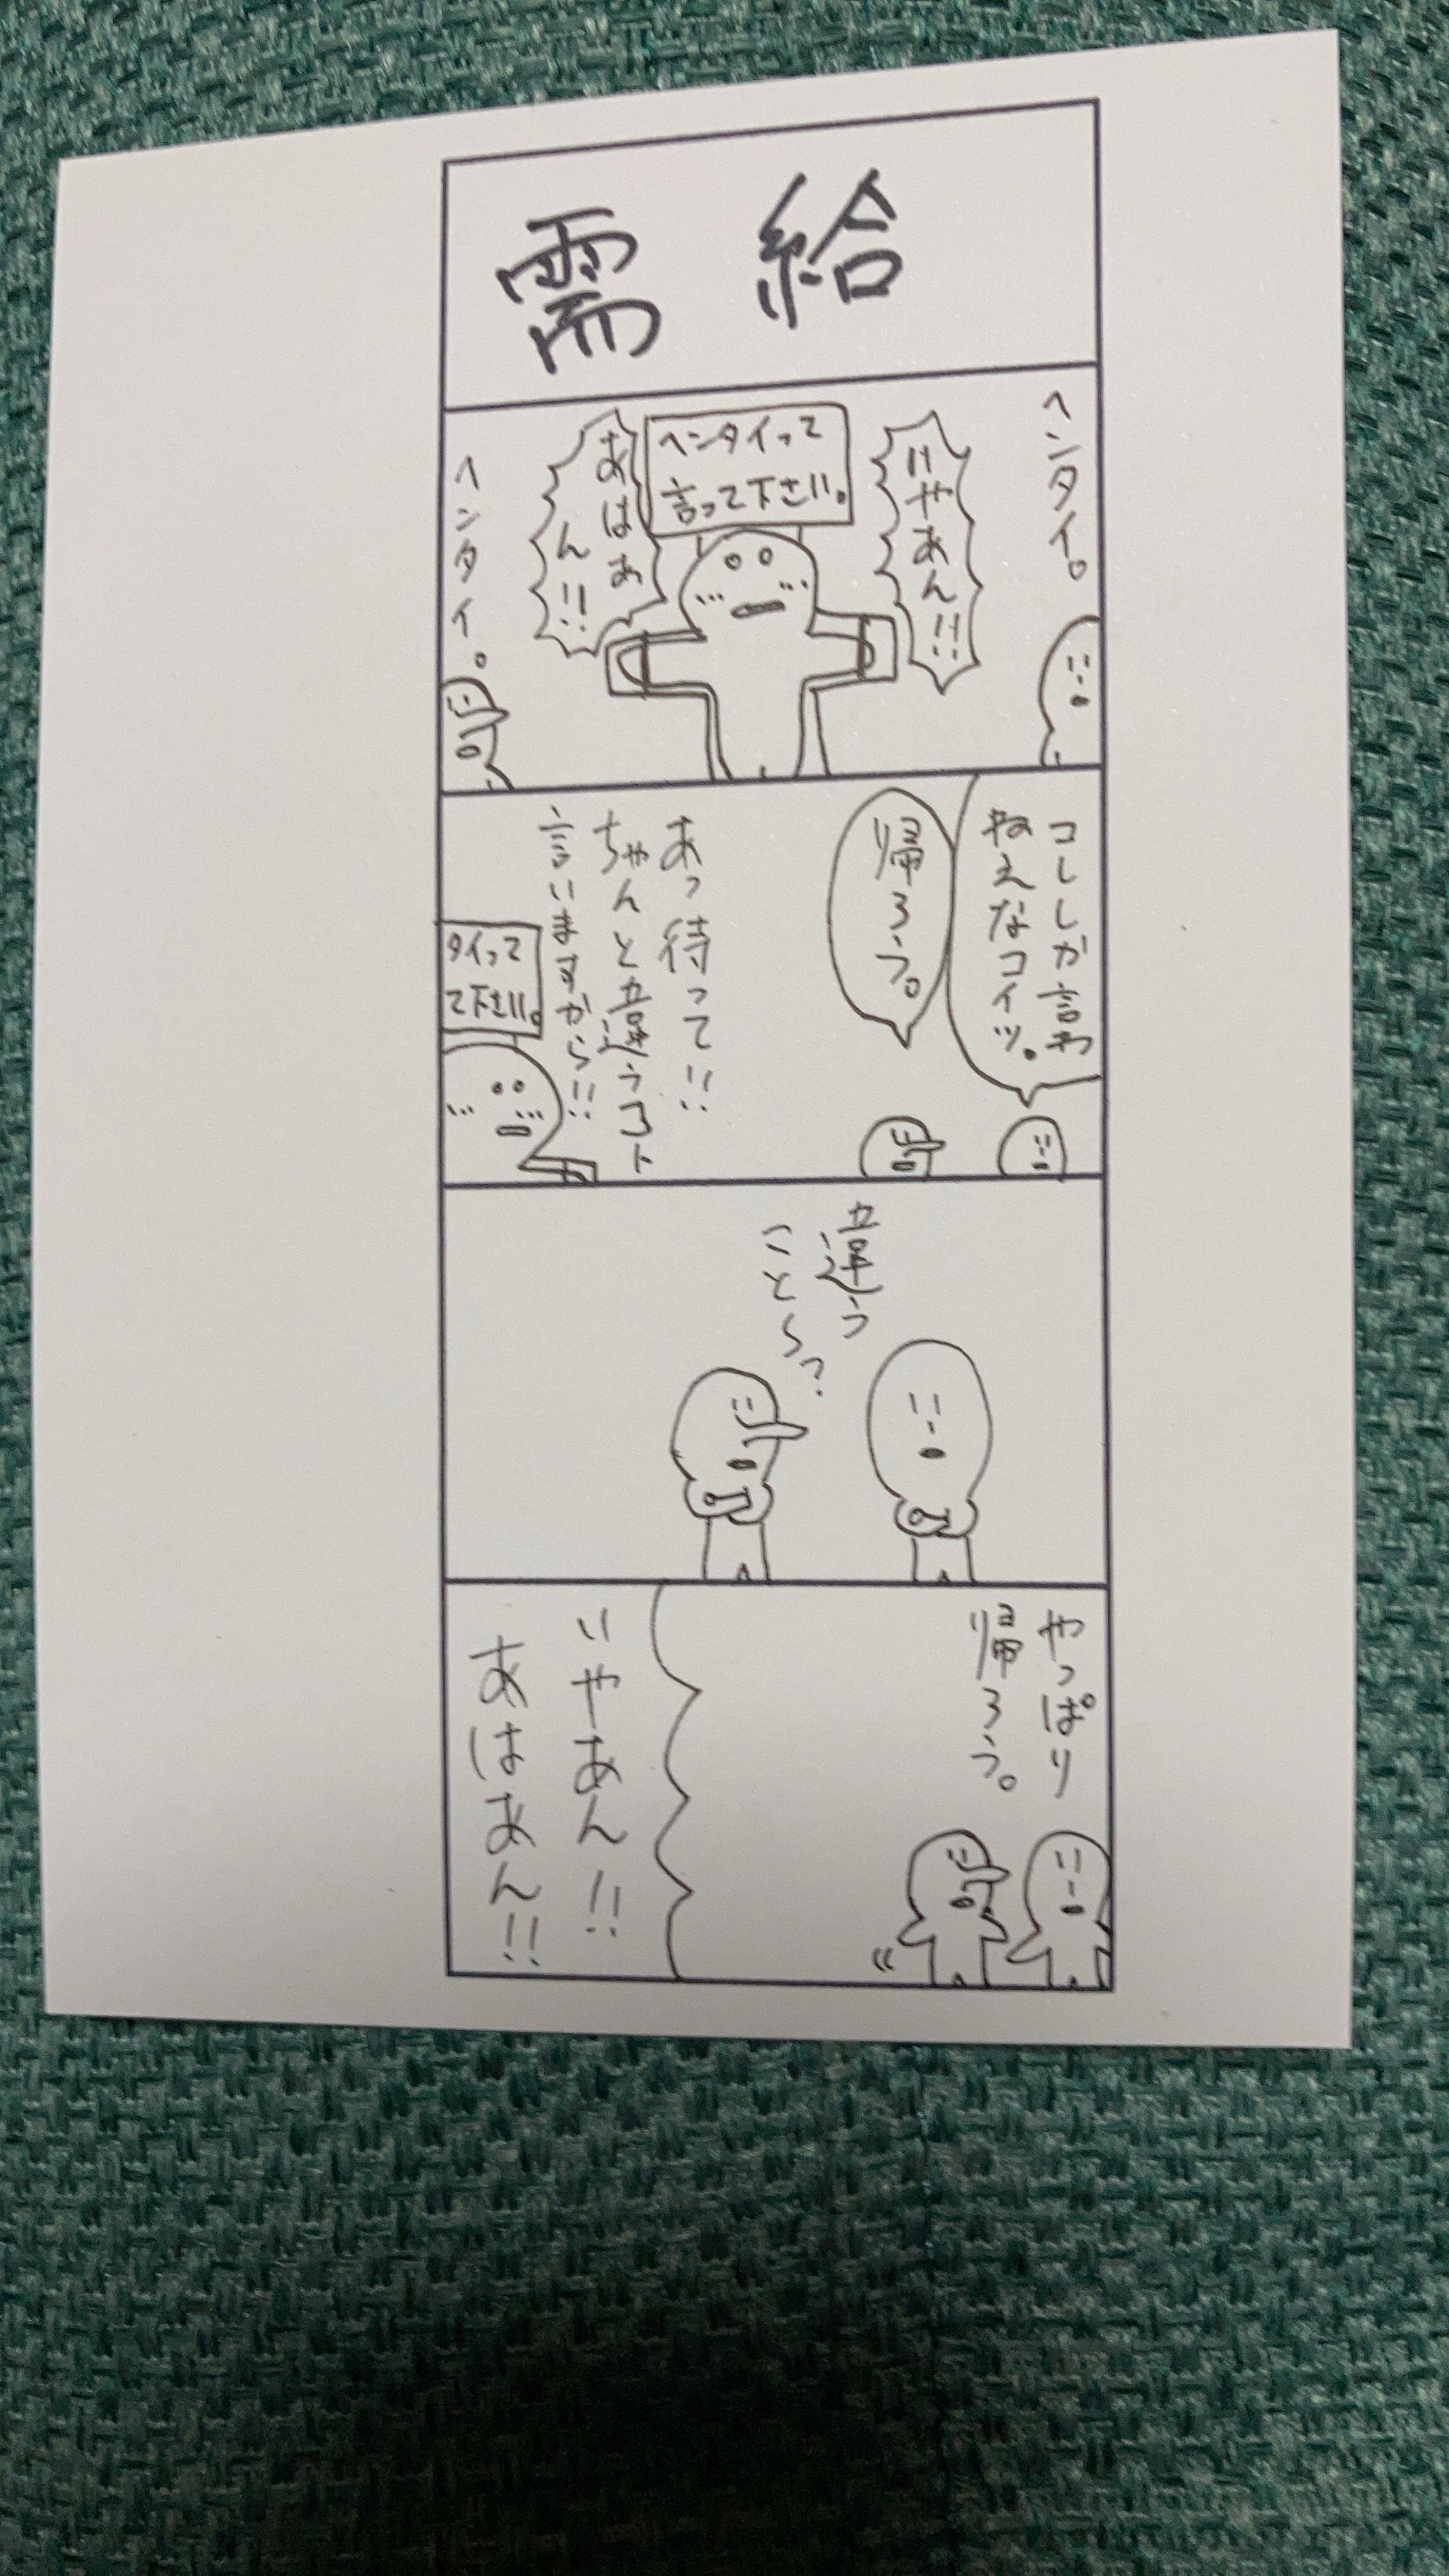 需給
ヘンタイ。
いやあん!!
ヘンタイって
言って下さい。
あはあ
ん!!
ヘンタイ。
コレしか言わ
ねえなコイツ。
帰ろう。
あっ待って!!
ちゃんと違うコト
言いますから!!
タイって
て下さい。
違う
ことら?
やっぱり
帰ろう。
いやあん!!
あはあん!!